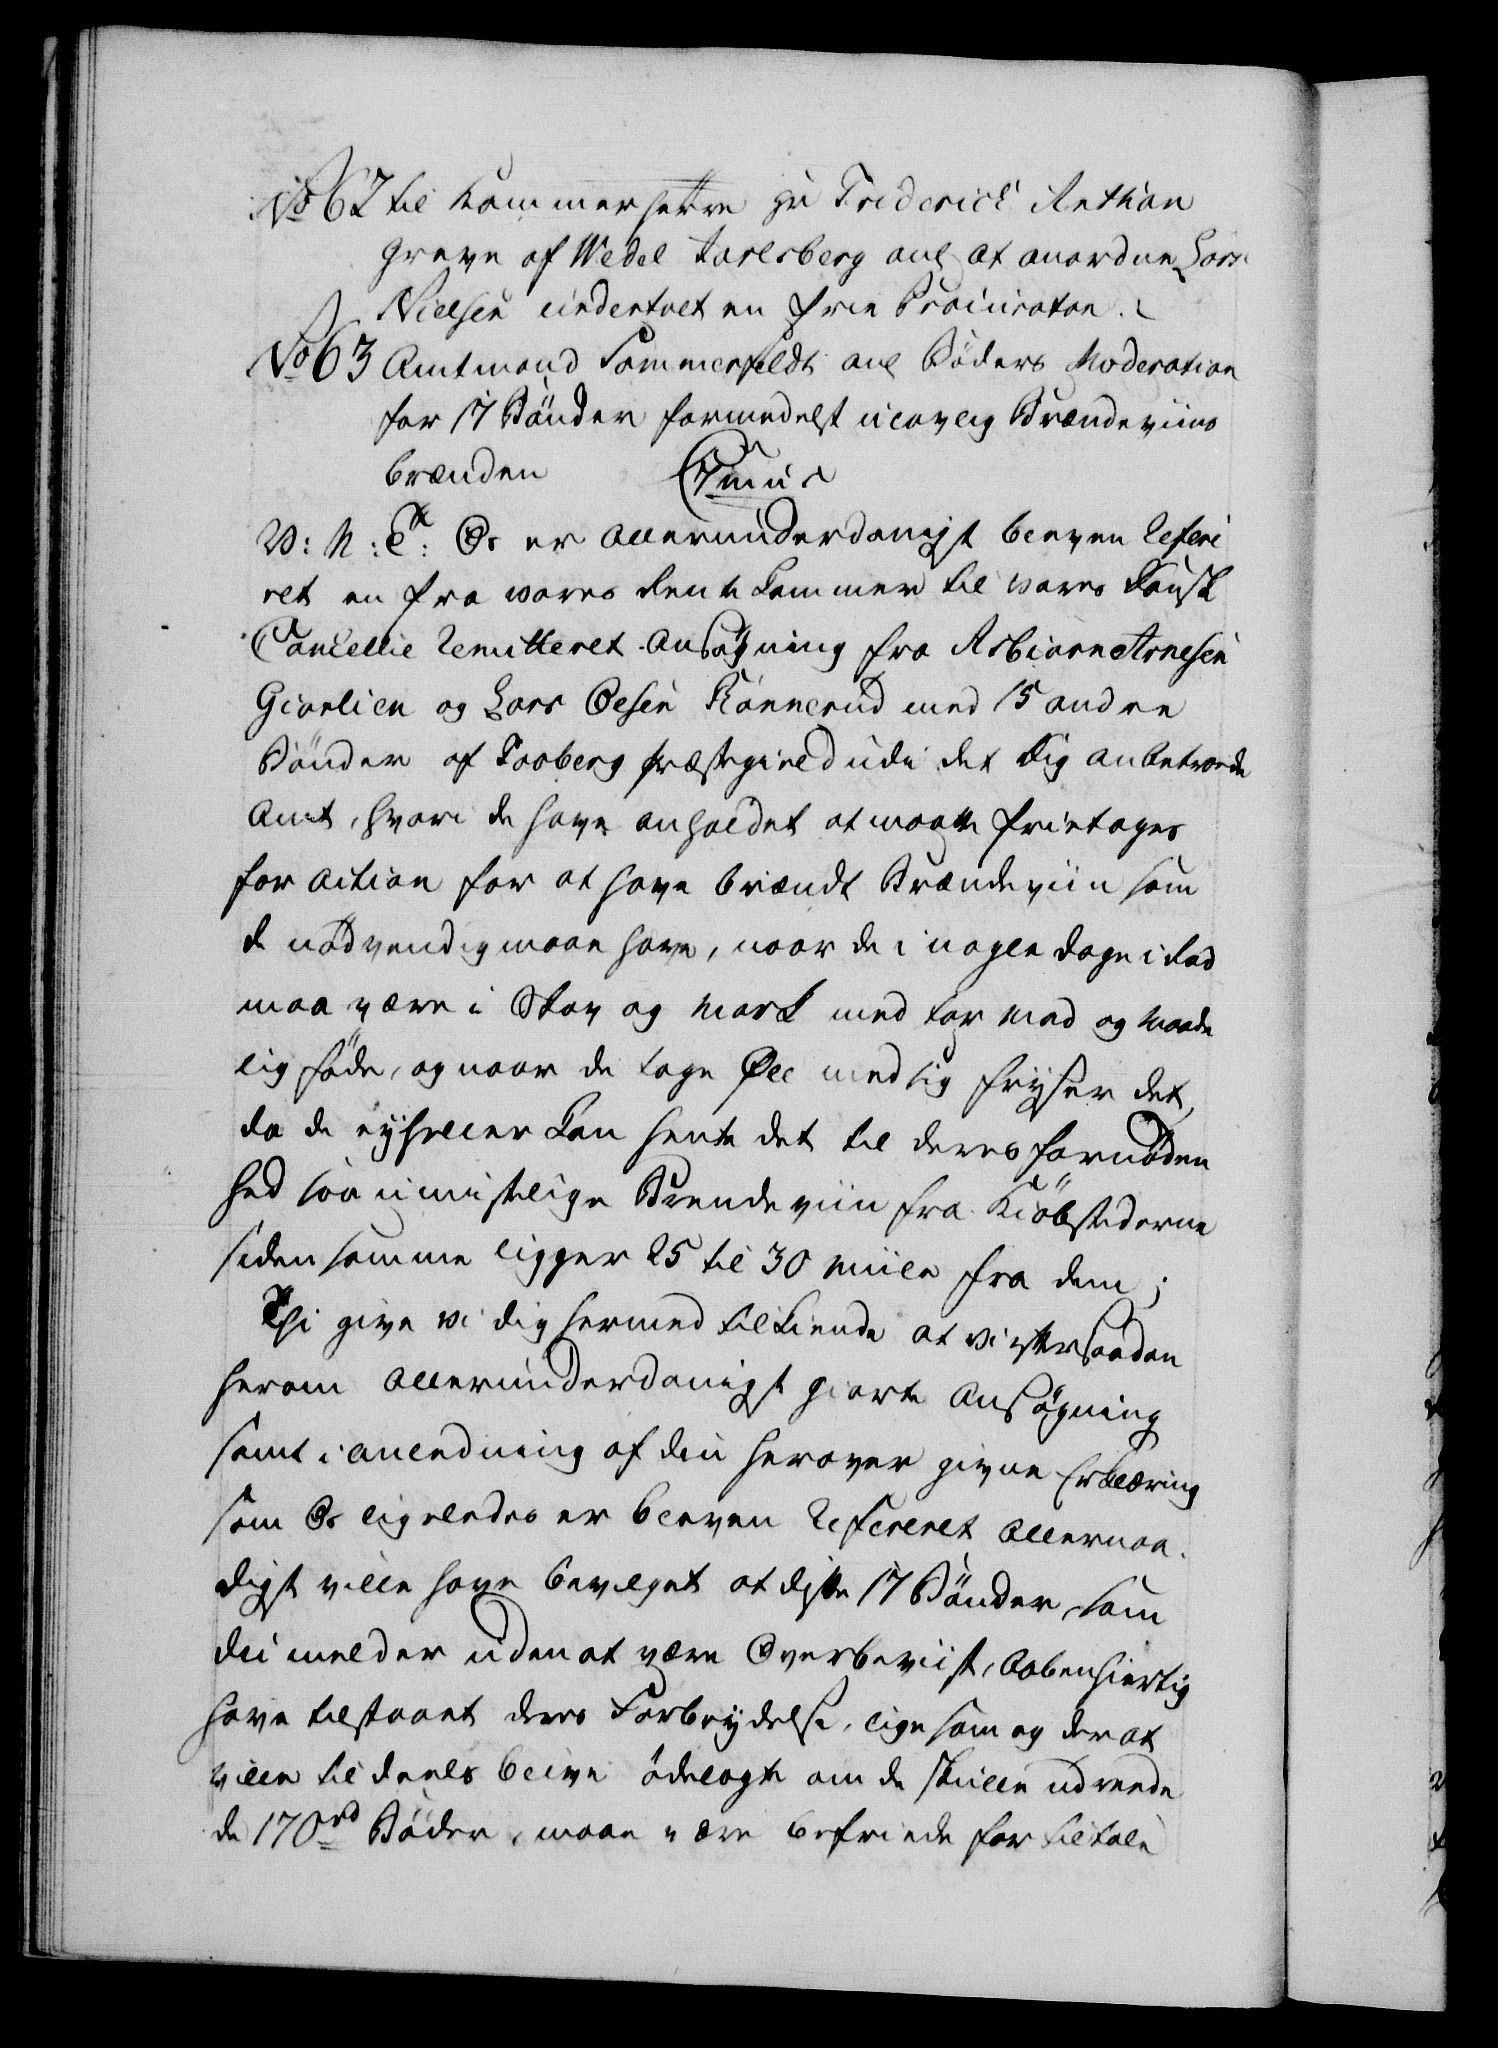 No 62 til Kammerherre Hr Friderich Anthon
Greve af Wedel Jarlsberg anl at anordne Lars
Nielsen Undertoet en frie Procurator.
No 63 Amtmand Sommerfeldt anl Böders Moderation
for 17 Bönder formedelst ulovlig Brændeviins
brænden
V: N: T: Os er allerunderdanigst bleven Referi
ret en fra vores Rente Kammer til vores Dansk
Cancellie Remitteret Ansögning fra Asbiørn Arnesen
Giørlien og Lars Olsen Rönnerud med 15 andre
Bönder af Foeberg præstegield udi det dig anbetroede
Amt, hvori de have anholdet at maatte frietages
for Action for at have brændt Brændeviin som
de nödvendig maae have, naar de i nogle dage i Rad
maa være i Skov og Mark med tør Mad og Maade
lig føde, og naar de tage Øll med sig fryser det,
da de ey heller kan hente det til deres fornöden
hed saa umistelige Brendeviin fra Kiöbstederne
siden samme ligger 25 til 30 Miile fra dem;
Thi give vi dig hermed tilkiende at vi efter saadan
herom allerunderdanigst giorte Ansögning
samt i anledning af din herover givne Erklæring
som Os ligeledes er bleven Refereret Allernaa-
digst ville have bevilget at disse 17 Bönder, som
du melder uden at være Overbeviist, Aabenhiertig
have tilstaaet deres Forbrydelse, ligesom og der at
ville til deels blive ödelagte om de skulle udreede
de 170 rd Böder, maae være befriede for tiltale